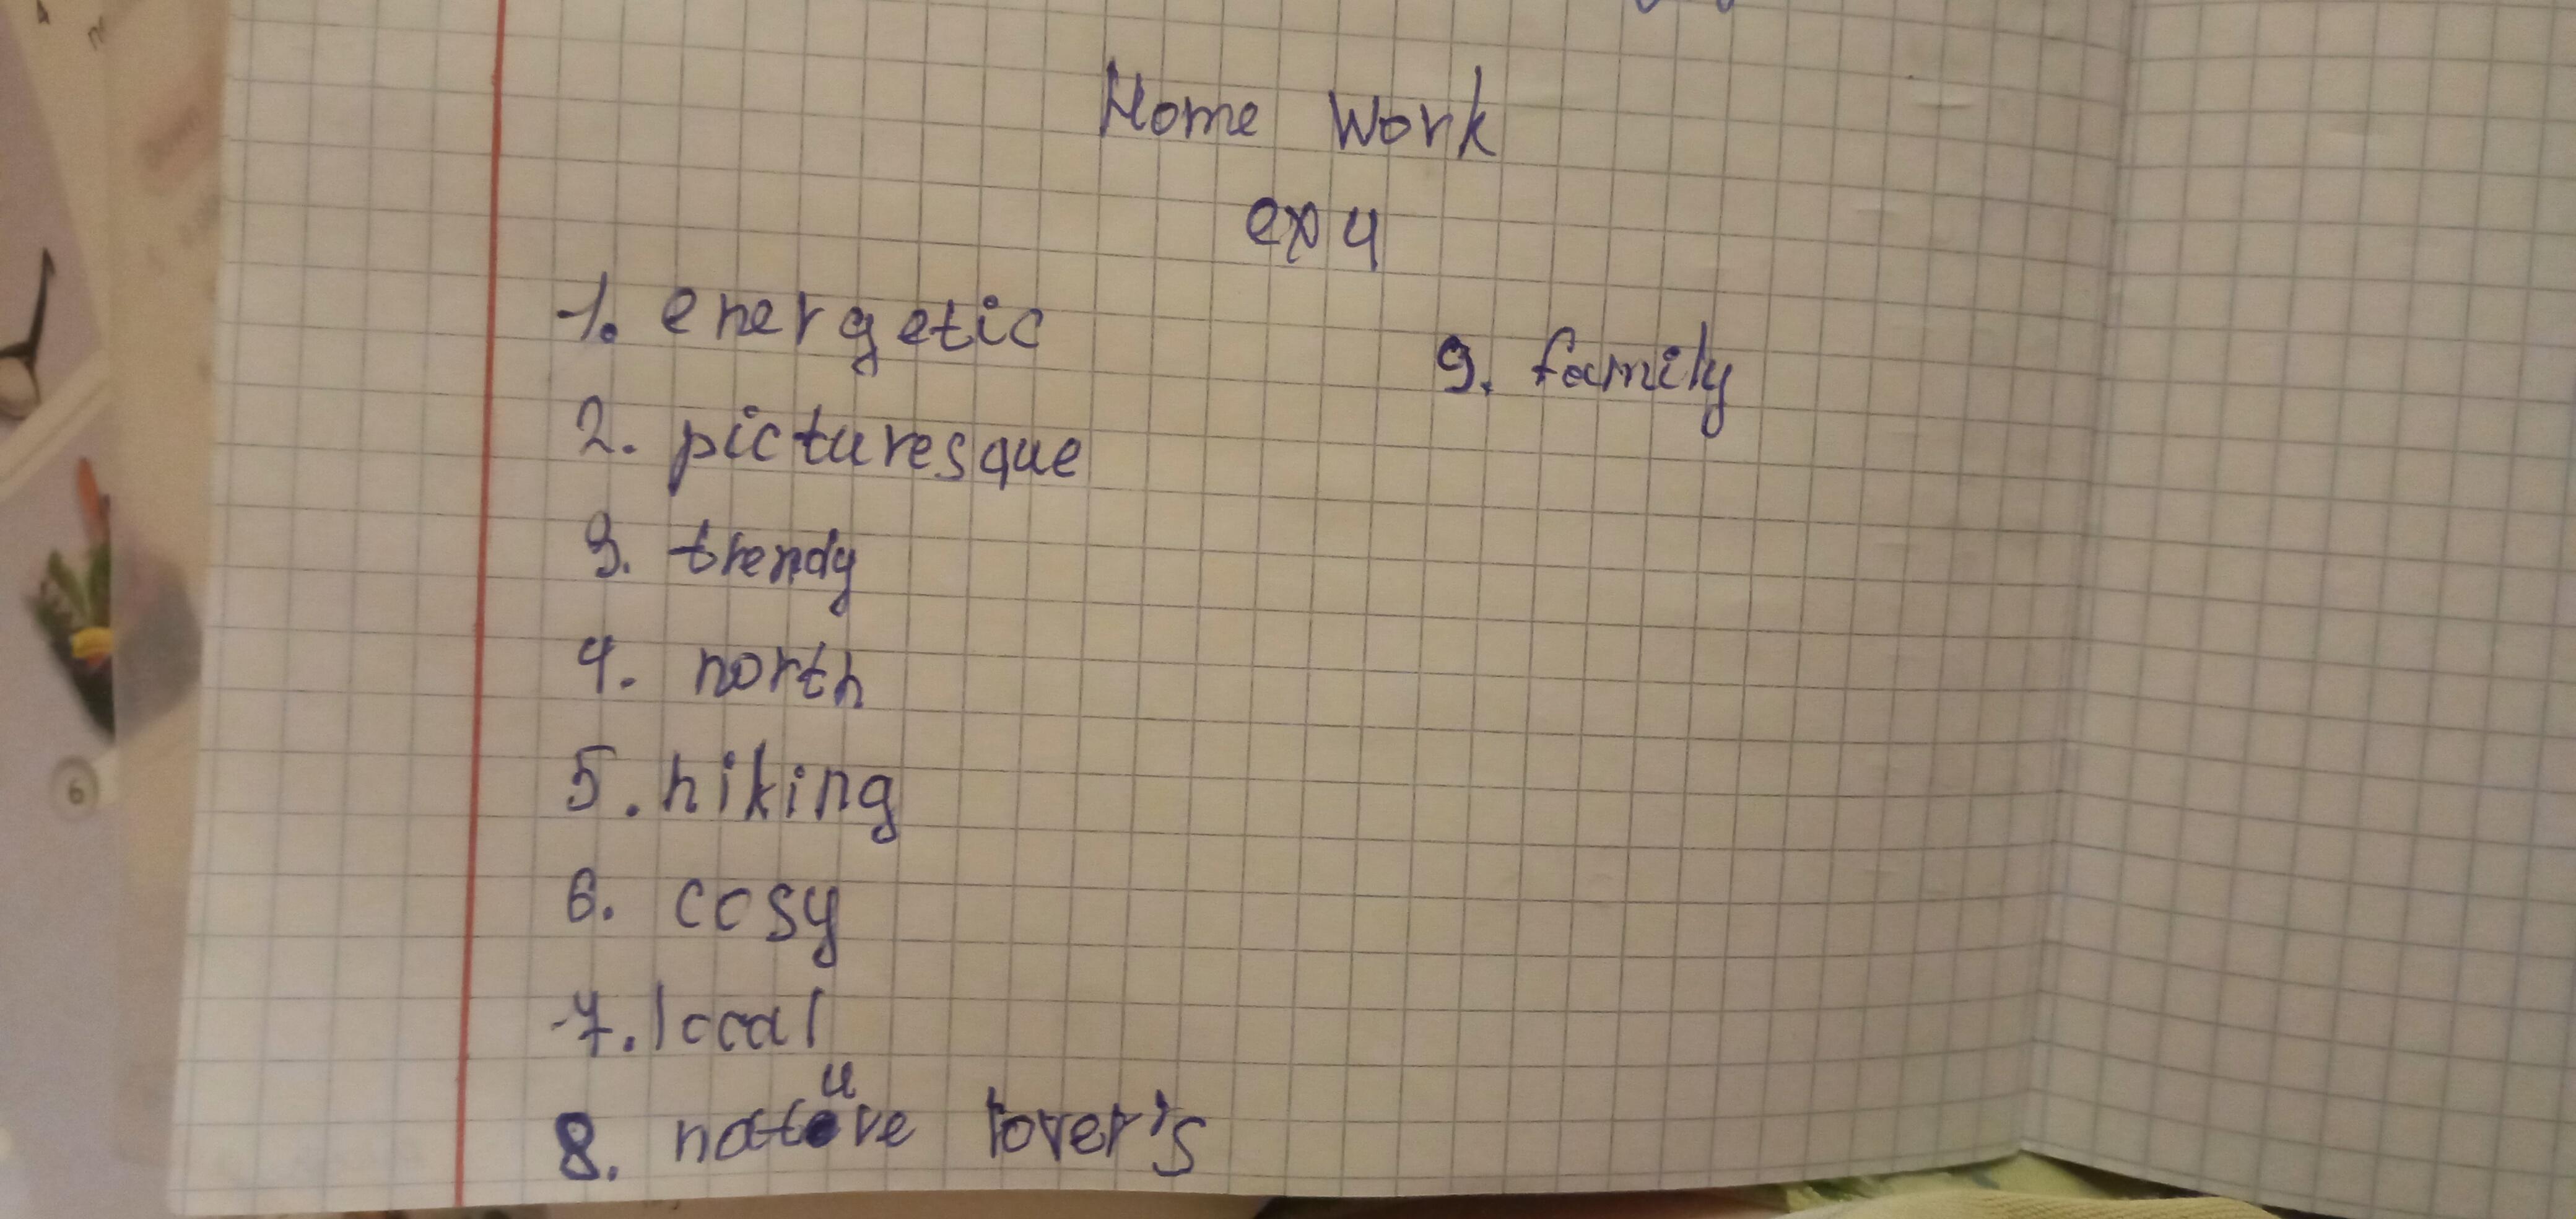 Home Work
ex 4
1. energetic
2. picturesque
3. trendy
4. north
5. hiking
6. cosy
7. local
8. nature lover's
9. family
6